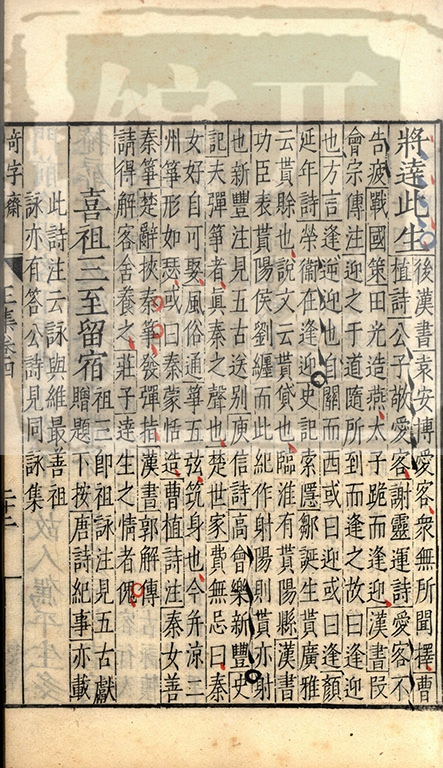 將達此生後漢書袁安博愛容衆無所聞擇曹
植詩公子敬愛客謝靈運詩愛客不
告疲戰國策田光造燕太子跪而逢迎漢書段
會宗傳注迎之于道隨所到而逢之故曰逢迎
也方言逢逆迎也自關而西或曰迎或曰逢顏
延年詩榮衞在逢迎史記索隱鄒誕生貰廣雅
云貰賒也說文云貰貸也臨淮有貰陽縣漢書
功臣表貰陽侯劉纏而此紀作射陽則貰亦射
也新豐注見五古送别庾信詩高會樂新豐史
記夫彈箏者真秦之聲也楚世家費無忌曰秦
女好自可娶風俗通箏五弦筑身也今并涼二
州箏形如瑟或曰秦蒙恬造曹植詩注秦女善
秦箏楚辭挾秦箏發彈指漢書郭解傳
請得解客舍養之莊子達生之情者傀
喜祖三至留宿祖三即祖詠注見五古獻
贈題下按唐詩紀事亦載
此詩注云詠與維最善祖
詠亦有答公詩見同詠集
奇字齋